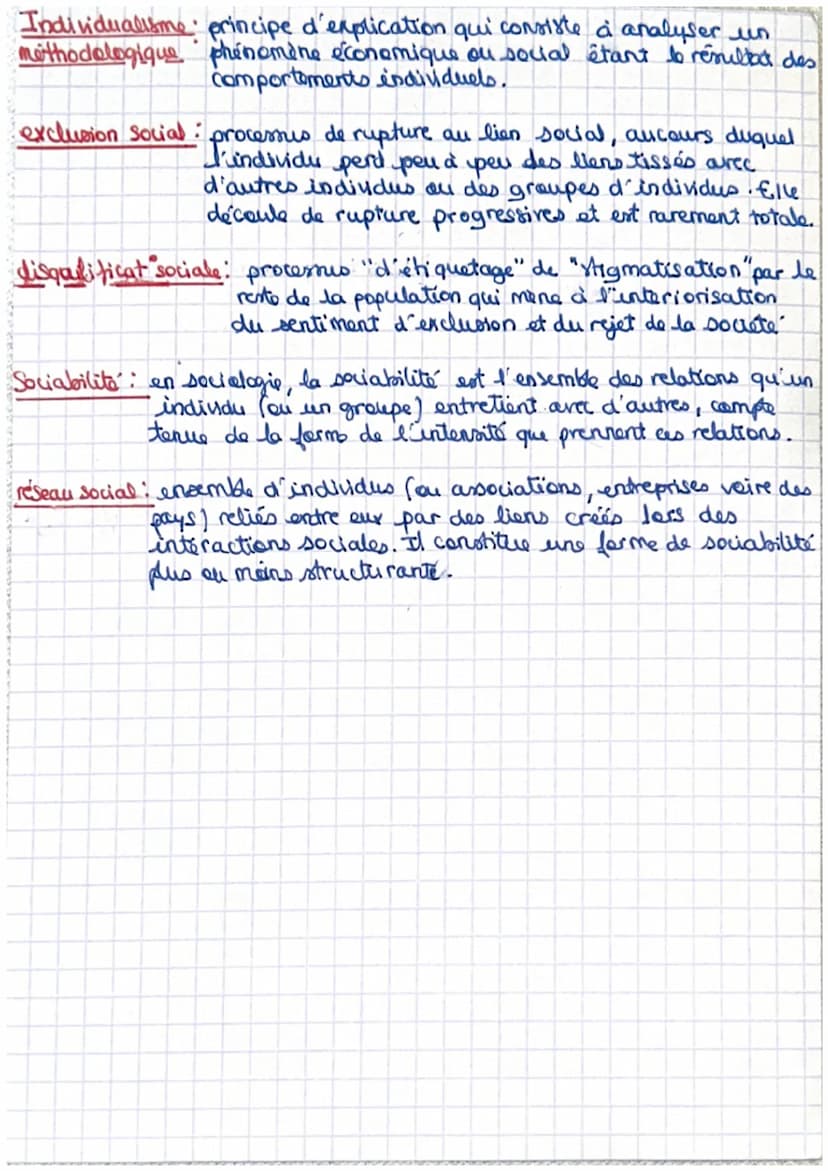 Individualisme : principe d'explication qui consiste à analyser un
méthodologique phénomène économique ou social étant le résultat des
comportements individuels.
exclusion social : processus de rupture au lien social, aucours duquel
l'individu perd peu à peu des liens tissés avec
d'autres individus ou des groupes d'individus. Elle
découle de rupture progressives et est rarement totale.
disqualificat° sociale : processus "d'étiquetage" de "stigmatisation" par le
reste de la population qui mène à l'interiorisation
du sentiment d'exclusion et du rejet de la société
Sociabilité : en sociologie, la sociabilité est l'ensemble des relations qu'un
individu (ou un groupe) entretient avec d'autres, compte
tenue de la forme de l'intensité que prennent ces relations.
réseau social : ensemble d'individus (ou associations, entreprises voire des
pays) reliés entre eux par des liens créés lors des
intéractions sociales. Il constitue une forme de sociabilité
plus ou moins structurante.